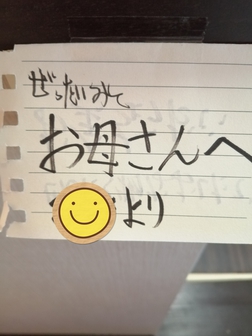 ぜったいみて
お母さんへ
より